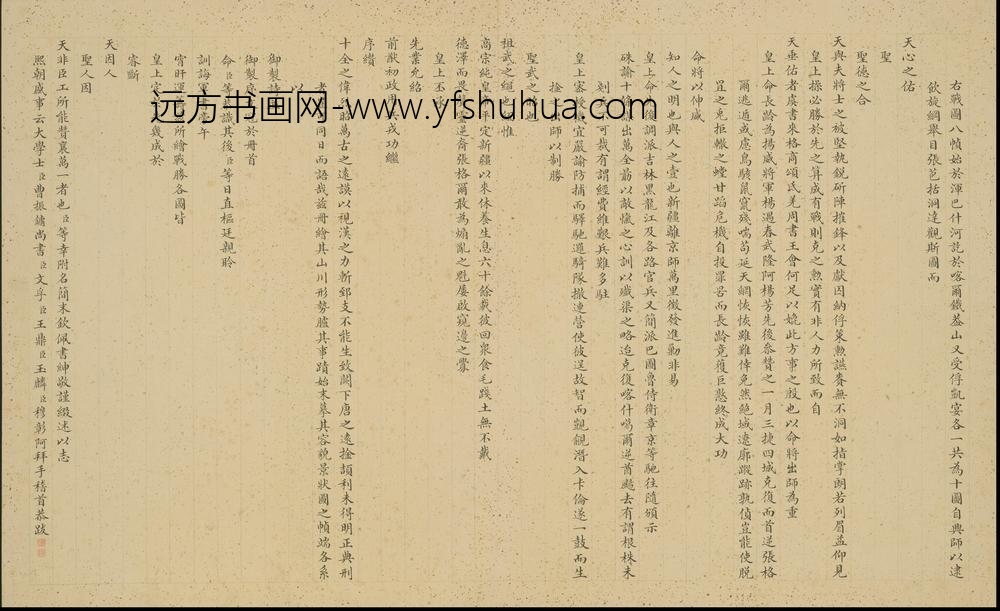 右戰圖八幀始於渾巴什河訖於喀爾鐵葢山又受俘凱宴各一共為十圖自興師以逮
飲旋綱舉目張苞括洞達觀斯圖而
天心之佑
聖
聖德之合
天與夫將士之被堅執銳斫陣摧鋒以及獻囚納俘策勲讌賚無不洞如指掌朗若列眉葢仰見
皇上操必勝於先之算成有戰則克之勲實有非人力所致而自
天垂佑者虞書來格商頌氐羌周書王會何足以媲此方事之殷也以命將出師為重
皇上命長齡為揚威將軍楊遇春武隆阿楊芳先後叅贊之一月三捷四城克復而首逆張格
爾逃遁或慮鳥駭鼠竄殘喘苟延天網恢恢雖難倖免然絕域遼廓蹤跡孰偵豈能使脫
罝之兔拒轍之螳甘蹈危機自投罪罟而長齡竟獲巨憝終成大功
命將以仲威
知人之明也與人之壹也新疆離京師萬里徵發進勦非易
皇上命 復調派吉林黑龍江及各路官兵又簡派巴圖魯侍衛章京等馳往隨頒示
硃諭十 出萬全篇以敵愾之心訓以殲渠之略迨克復喀什噶爾逆酋颺去有謂根株未
剗 可裁有謂經費維艱兵難多駐
皇上宸 宜嚴諭防捕而驛馳邏騎隊撤連營使彼逞故智而覬覦潛入卡倫遂一鼓而生
擒 出師以制勝
聖武之 也
祖武之繩 惟
高宗純皇 平定新疆以來休養生息六十餘載彼回衆食毛踐土無不戴
德澤而畏 逆裔張格爾敢為煽亂之魁屢啟窺邊之釁
皇上丕承
先業允紹
前猷初政 戎功繼
序纘
十全之偉 昭萬古之遠謨以視漢之力斬郅支不能生致闕下唐之遠擒頡利未得明正典刑
者 同日而語哉茲冊繪其山川形勢臚其事蹟始末摹其容貌景狀圖之幀端各系
以
御製詩
御製序 於冊首
命臣等恭識其後臣等日直樞廷親聆
訓誨軍 午
宵旰運 所繪戰勝各圖皆
皇上宸 幾成於
睿斷
天因人
聖人因
天非臣工所能贊襄萬一者也臣等幸附名簡末欽佩書紳敬謹綴述以志
熙朝盛事云大學士臣曹振鏞尚書臣文孚臣王鼎臣玉麟臣穆彰阿拜手稽首恭跋
远方书画网-www.yfshuhua.com